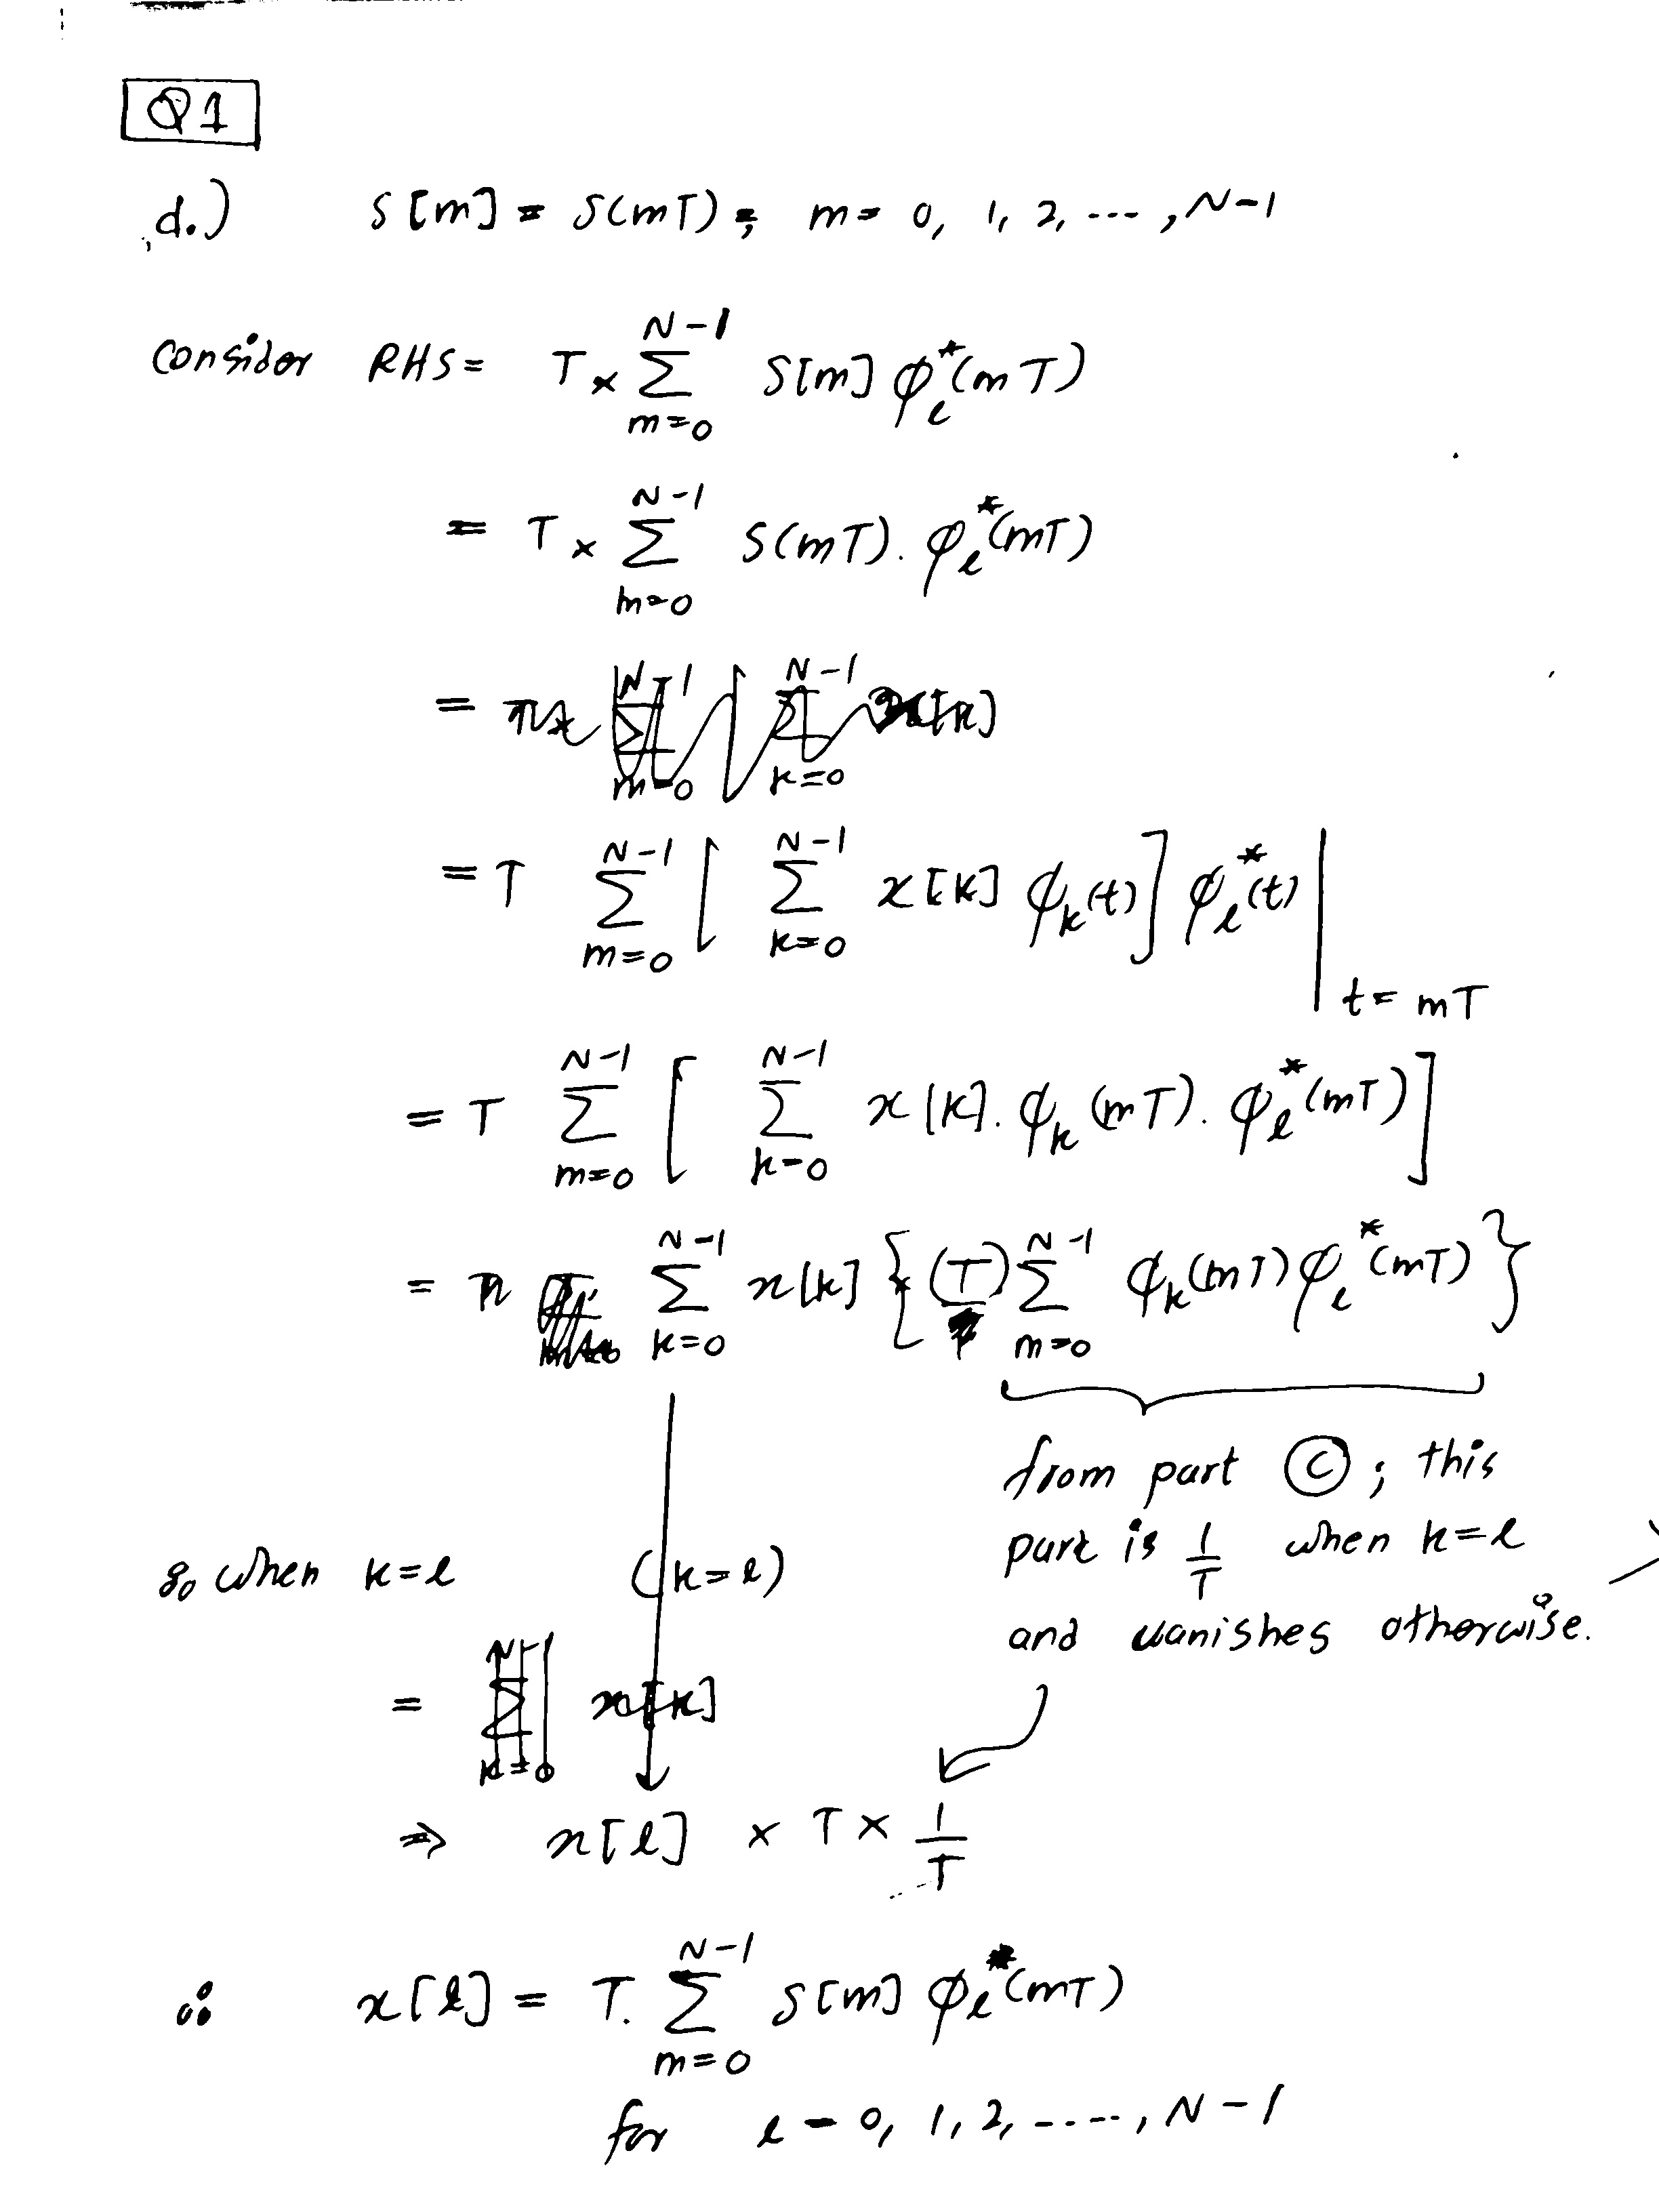 Q1
d.) S[m] = S(mT); m = 0, 1, 2, ..., N-1
Consider RHS = T × ∑_{m=0}^{N-1} S[m] φ_l^*(mT)
= T × ∑_{m=0}^{N-1} S(mT). φ_l^*(mT)
= T × ∑_{m=0}^{N-1} [ ∑_{k=0}^{N-1} x[k]
= T ∑_{m=0}^{N-1} [ ∑_{k=0}^{N-1} x[k] φ_k(t) ] φ_l^*(t) |_{t = mT}
= T ∑_{m=0}^{N-1} [ ∑_{k=0}^{N-1} x[k]. φ_k(mT). φ_l^*(mT) ]
= ∑_{k=0}^{N-1} x[k] { (T) ∑_{m=0}^{N-1} φ_k(mT) φ_l^*(mT) }
from part (c); this
part is 1/T when k=l
and vanishes otherwise.
so when k=l (k=l)
= ∑_{k=0}^{N-1} x[k]
⇒ x[l] × T × 1/T
∴ x[l] = T. ∑_{m=0}^{N-1} S[m] φ_l^*(mT)
for l = 0, 1, 2, ....., N-1